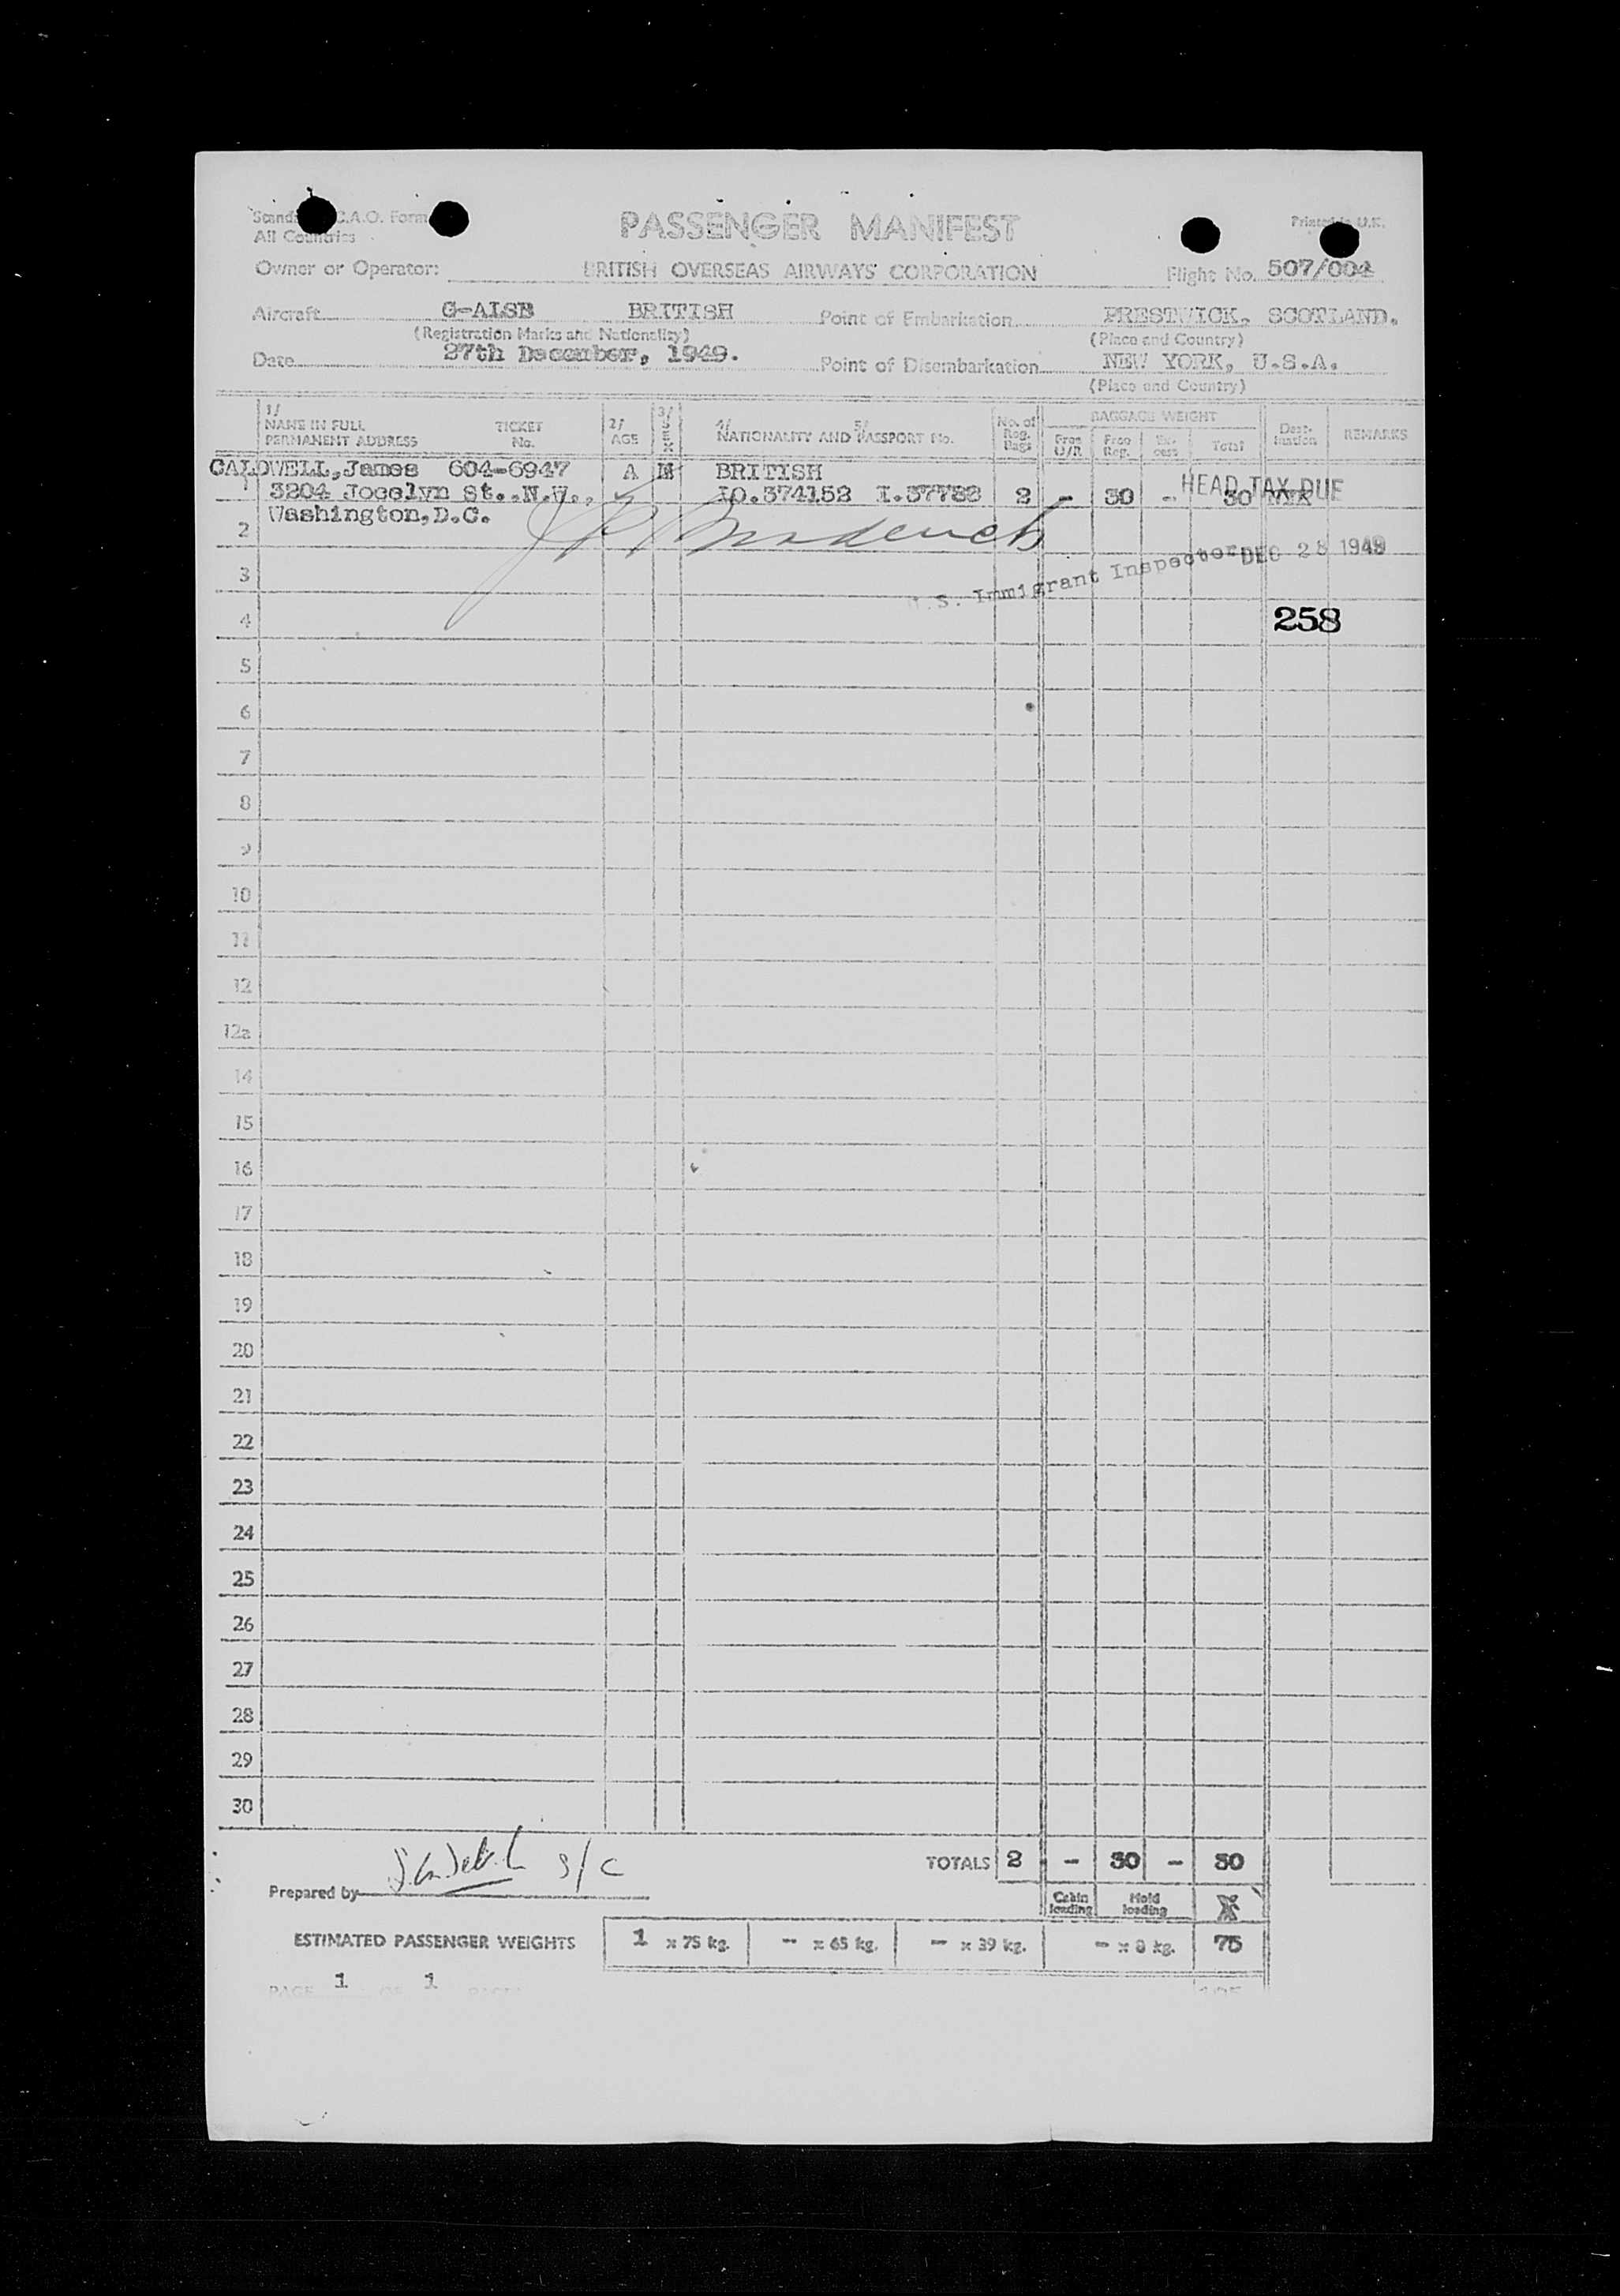 Standa C.A.O. Form
All Countries
PASSENGER MANIFEST
Printed in U.K.
Owner or Operator: BRITISH OVERSEAS AIRWAYS CORPORATION Flight No. 507/004
Aircraft G-ALSB BRITISH Point of Embarkation PRESTWICK, SCOTLAND.
(Registration Marks and Nationality) (Place and Country)
Date 27th December, 1949. Point of Disembarkation NEW YORK, U.S.A.
(Place and Country)
1/ NAME IN FULL PERMANENT ADDRESS TICKET No. 2/ AGE 3/ SEX 4/ 5/ NATIONALITY AND PASSPORT No. No. of Reg. Bags BAGGAGE WEIGHT Free U/R Free Reg. Ex-cess Total Dest-ination REMARKS
CALDWELL,James 604-6947 A M BRITISH
1 3204 Jocelyn St.,N.W., IO.374152 I.37788 2 - 30 - 30
HEAD TAX DUE
Washington,D.C.
2
U.S. Immigrant Inspector DEC 28 1949
3
4 258
5
6
7
8
9
10
11
12
12a
14
15
16
17
18
19
20
21
22
23
24
25
26
27
28
29
30
TOTALS 2 - - 30 - 30
Prepared by S/C
Cabin loading Hold loading
ESTIMATED PASSENGER WEIGHTS 1 x 75 kg. - x 65 kg. - x 39 kg. - x 8 kg. 75
PAGE 1 OF 1 PAGES